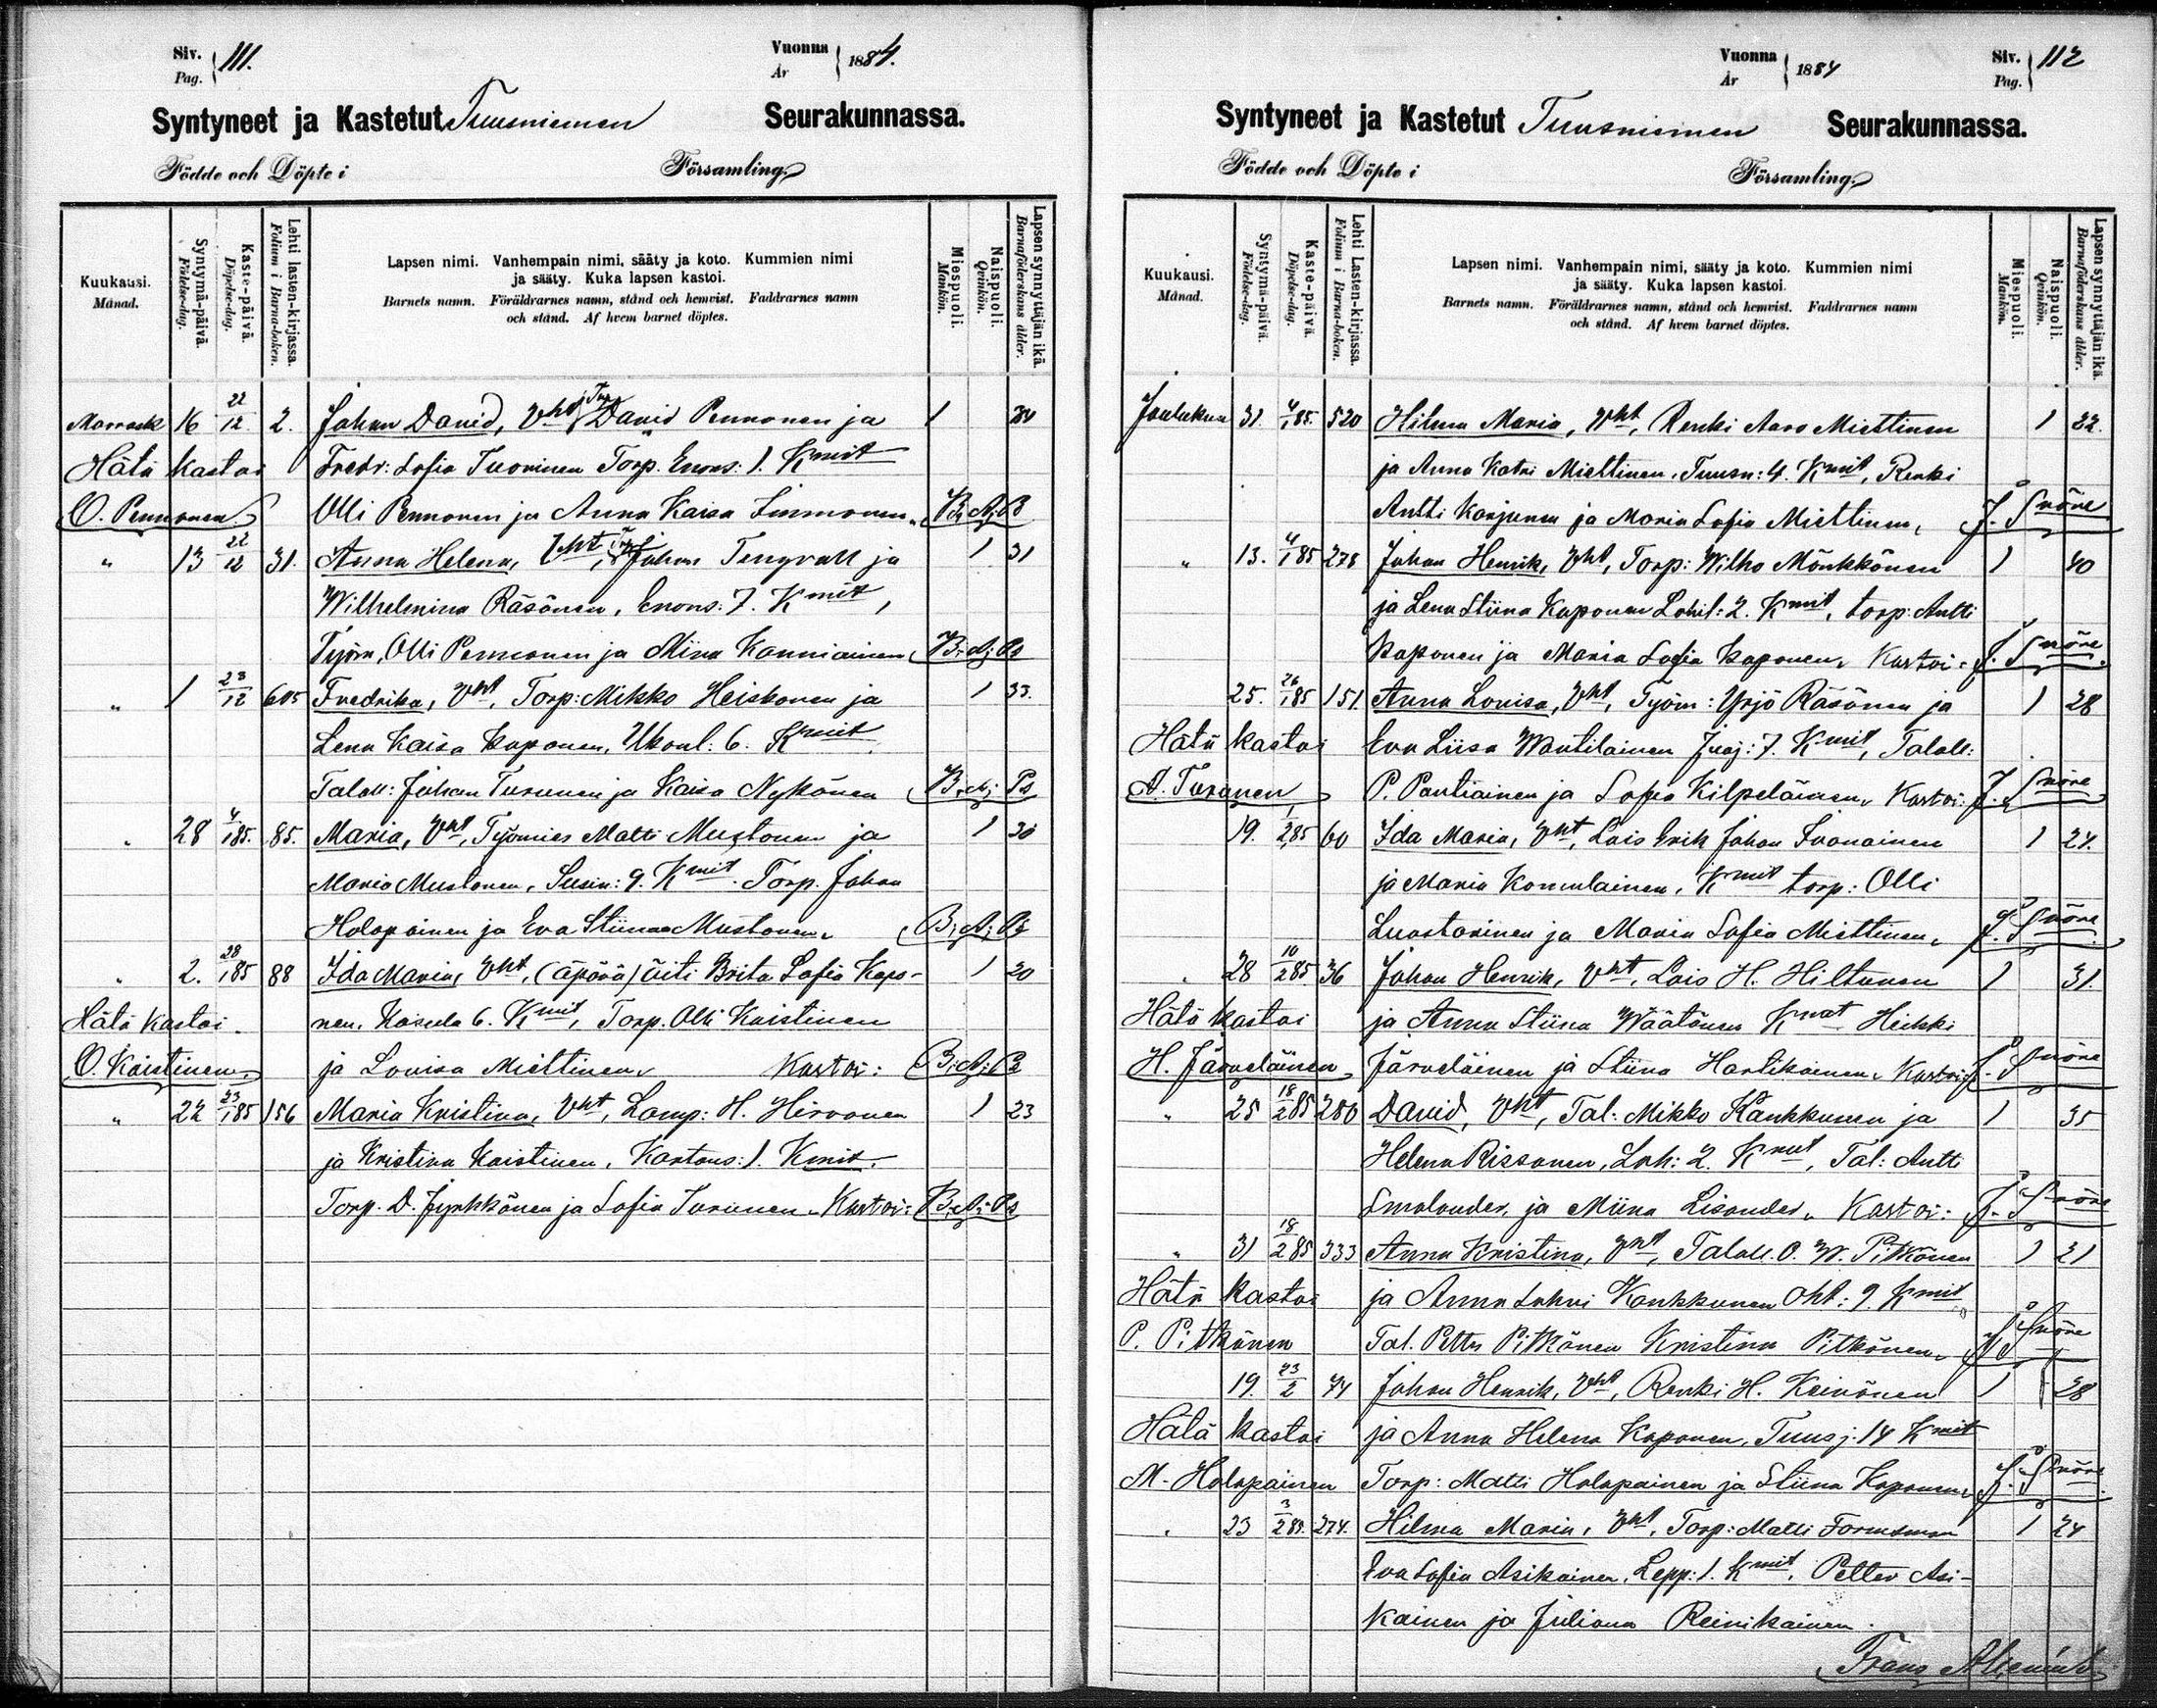 Siv. Pag. 111.
Vuonna År 1884.
Syntyneet ja Kastetut Tuusniemen Seurakunnassa.
Födde och Döpte i Församling
Kuukausi. Månad.
Syntymä-päivä. Födelse-dag.
Kaste-päivä. Döpelse-dag.
Lehti lasten-kirjassa. Folium i Barna-boken.
Lapsen nimi. Vanhempain nimi, sääty ja koto. Kummien nimi
ja sääty. Kuka lapsen kastoi.
Barnets namn. Föräldrarnes namn, stånd och hemvist. Faddrarnes namn
och stånd. Af hvem barnet döptes.
Miespuoli. Mankön.
Naispuoli. Qvinkön.
Lapsen synnyttäjän ikä. Barnaföderskans ålder.
Marrask 16 22/12. 2. Johan David, Vht, David Pennonen ja 1
Hätä kastoi Fredr: Sofia Tuovinen Torp. Enons: 1. Kmit
O. Pennonen Olli Pennonen ja Anna Kaisa Limmonen
" 13 22/12 31. Anna Helena, Vht, Johan Tengvall ja 1 31
Wilhelmina Räsönen, Enons: 7. Kmit,
Työm, Olli Pennonen ja Miina Kanniainen
" 1 23/12 605 Fredrika, Vht, Torp: Mikko Heiskonen ja 1 33.
Lena Kaisa Kaponen, Ukonl: 6. Kmit
Talall: Johan Turunen ja Kaisa Nykänen
" 28 4/1 85. 85. Maria, Vht, Työmies Matti Mustonen ja 1 30
Maria Mustonen, Susin: 9. Kmit. Torp. Johan
Holopainen ja Eva Stiina Mustonen
" 2. 28/1 85 88 Ida Maria, Vht, (äpärä) äiti Brita Sofia Kapo- 1 20
Hätä kastoi. nen, Kosula 6. Kmit, Torp. Olli Kaistinen
O. Kaistinen ja Lovisa Miettinen Kastoi:
" 22 23/1 85 156 Maria Kristina, Vht, Lamp: H. Hirvonen 1 23
ja Kristina Kaistinen, Kartans: 1. Kmit.
Torp. D. Jynkkänen ja Sofia Turunen. Kastoi:
Vuonna År 1884
Siv. Pag. 112
Syntyneet ja Kastetut Tuusniemen Seurakunnassa.
Födde och Döpte i Församling.
Kuukausi. Månad.
Syntymä-päivä. Födelse-dag.
Kaste-päivä. Döpelse-dag.
Lehti Lasten-kirjassa. Folium i Barna-boken.
Lapsen nimi. Vanhempain nimi, sääty ja koto. Kummien nimi
ja sääty. Kuka lapsen kastoi.
Barnets namn. Föräldrarnes namn, stånd och hemvist. Faddrarnes namn
och stånd. Af hvem barnet döptes.
Miespuoli. Mankön.
Naispuoli. Qvinkön.
Lapsen synnyttäjän ikä. Barnaföderskans ålder.
Joulukuu 31. 4/1 85. 520 Hilma Maria, Vht, Renki Aaro Miettinen 1 22.
ja Anna Katri Miettinen, Tuusn: 4. Kmit, Renki
Antti Karjunen ja Maria Sofia Miettinen, J. Snöre
" 13. 4/1 85 278 Johan Henrik, Vht, Torp: Wilho Mönkkönen 1 40
ja Lena Stiina Kaponen Lohil: 2. Kmit, torp: Antti
Kaponen ja Maria Sofia Kaponen, Kastoi: J. Snöre
25. 26/1 85 151. Anna Lovisa, Vht, Työm: Yrjö Räsönen ja 1 28
Hätä kastoi Eva Liisa Wantilainen Juoj: 7. Kmit, Talall:
A. Turunen P. Pantiainen ja Sofia Kilpeläinen, Kastoi: J. Snöre
19. 1/2 85 60 Ida Maria, Vht, Lois Erik Johan Ivanainen 1 24.
ja Maria Komulainen, Kmit torp: Olli
Luostarinen ja Maria Sofia Miettinen, J. Snöre
28 10/2 85. 36 Johan Henrik, Vht, Lois H. Hiltunen 1 31.
Hätä kastoi ja Anna Stiina Väätänen Kmat Heikki
H. Järveläinen Järveläinen ja Stiina Hartikainen, Kastoi J. Snöre
" 25 18/2 85 280 David, Vht, Tal: Mikko Kankkunen ja 1 35
Helena Rissanen, Loh: 2. Kmit, Tal: Antti
Smolander, ja Miina Lisander, Kastoi: J. Snöre
" 31 18/2 85 333 Anna Kristina, Vht, Talall. O. W. Pitkänen 1 21
Hätä kastoi ja Anna Sohvi Kankkunen Oht: 9. Kmit
P. Pitkänen Tal. Petter Pitkänen Kristina Pitkänen, J. Snöre
19. 23/2 74 Johan Henrik, Vht, Renki H. Keinänen 1 28
Hätä kastoi ja Anna Helena Kaponen, Tuusj: 14 Kmit
M. Holopainen Torp: Matti Holopainen ja Stiina Kaponen, J. Snöre
" 23 3/2 85. 274. Hilma Maria, Vht, Torp: Matti Forsman 1 24
Eva Sofia Asikainen, Lepp: 1. Kmit, Petter Asi-
kainen ja Juliana Reinikainen.
Frans